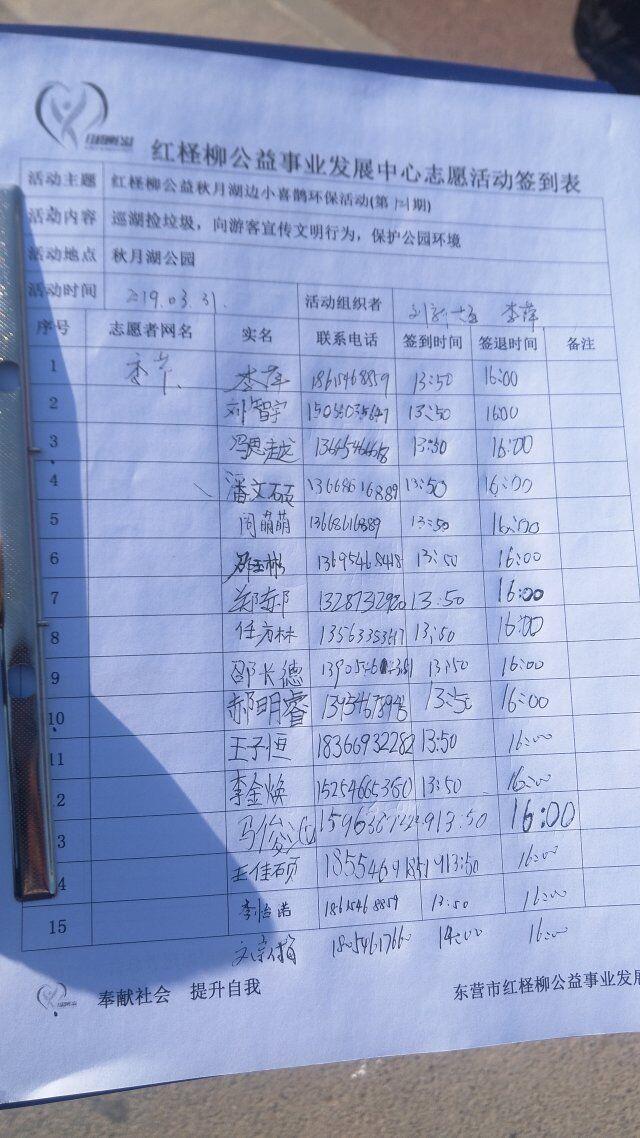 红柽柳公益事业发展中心志愿活动签到表
活动主题 红柽柳公益秋月湖边小喜鹊环保活动(第 期)
活动内容 巡湖捡垃圾，向游客宣传文明行为，保护公园环境
活动地点 秋月湖公园
活动时间 2019.03.31. 活动组织者 李萍
序号 志愿者网名 实名 联系电话 签到时间 签退时间 备注
1 李萍 18615468859 13:50 16:00
2 刘智宇 13:50 16:00
3 冯思越 13:50 16:00
4 潘文硕 13668616889 13:50 16:00
5 闫萌萌 13668616889 13:50 16:00
6 13695468418 13:50 16:00
7 郑郝 13287372980 13:50 16:00
8 任方林 13:50 16:00
9 邵长德 13:50 16:00
10 郝明睿 13:50 16:00
11 王子恒 18366932282 13:50 16:00
2 李金焕 15254665360 13:50 16:00
3 马俊 13:50 16:00
4 王佳硕 13:50 16:00
15 李怡诺 18615468859 13:50 16:00
18054617660 14:00 16:00
奉献社会 提升自我 东营市红柽柳公益事业发展